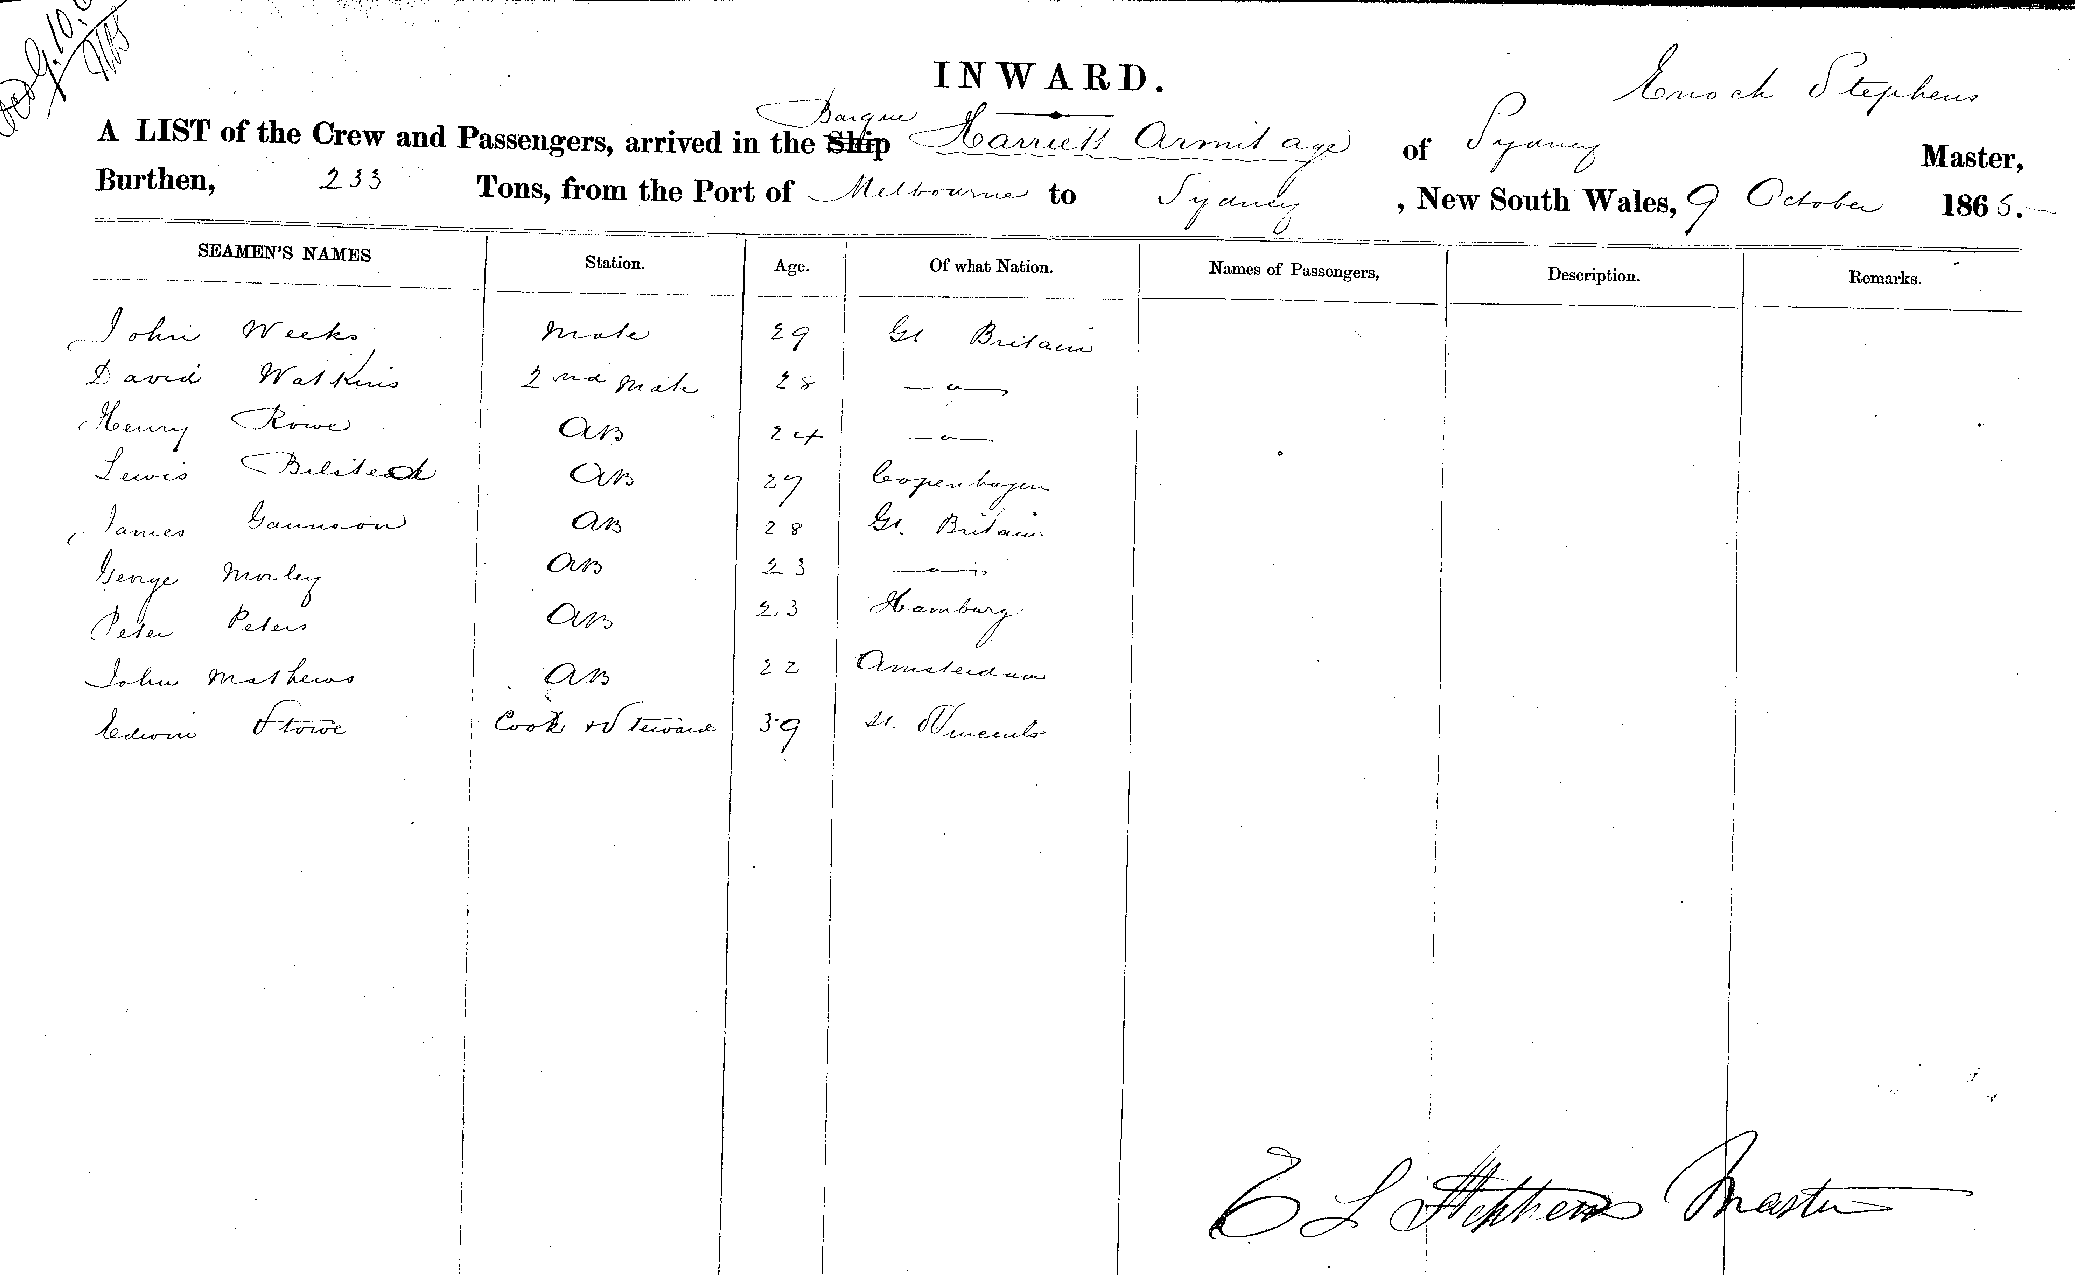 INWARD.
Enoch Stephens
A LIST of the Crew and Passengers, arrived in the Ship Barque Harriett Armitage of Sydney Master,
Burthen, 233 Tons, from the Port of Melbourne to Sydney, New South Wales, 9 October 1865.
SEAMEN'S NAMES Station. Age. Of what Nation. Names of Passongers, Description. Remarks.
John Weeks Mate 29 Gt Britain
David Watkins 2nd Mate 28 — " —
Henry Rowe AB 24 — " —
Lewis AB 27 Copenhagen
James Gaunson AB 28 Gt. Britain
George Morley AB 23 — " —
Peter Peters AB 23 Hamburg
John Mathews AB 22 Amsterdam
Edwin Stowe Cook & Steward 39 St. Vincents
E L Stephens Master